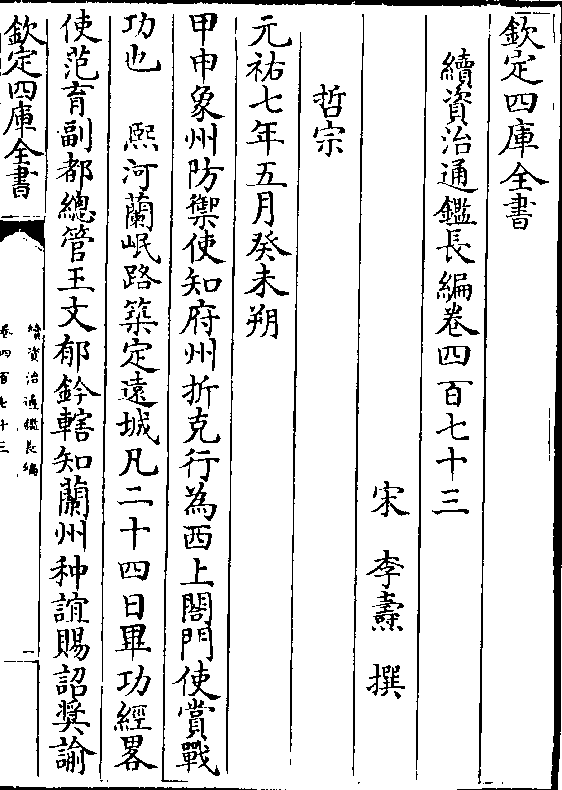 欽定四庫全書
續資治通鑑長編卷四百七十三
宋 李燾 撰
哲宗
元祐七年五月癸未朔
甲申象州防禦使知府州折克行為西上閤門使賞戰
功也 熙河蘭岷路築定遠城凡二十四日畢功經畧
使范育副都總管王文郁鈐轄知蘭州种誼賜詔奬諭
欽定四庫全書
續資治通鑑長編
卷四百七十三
一